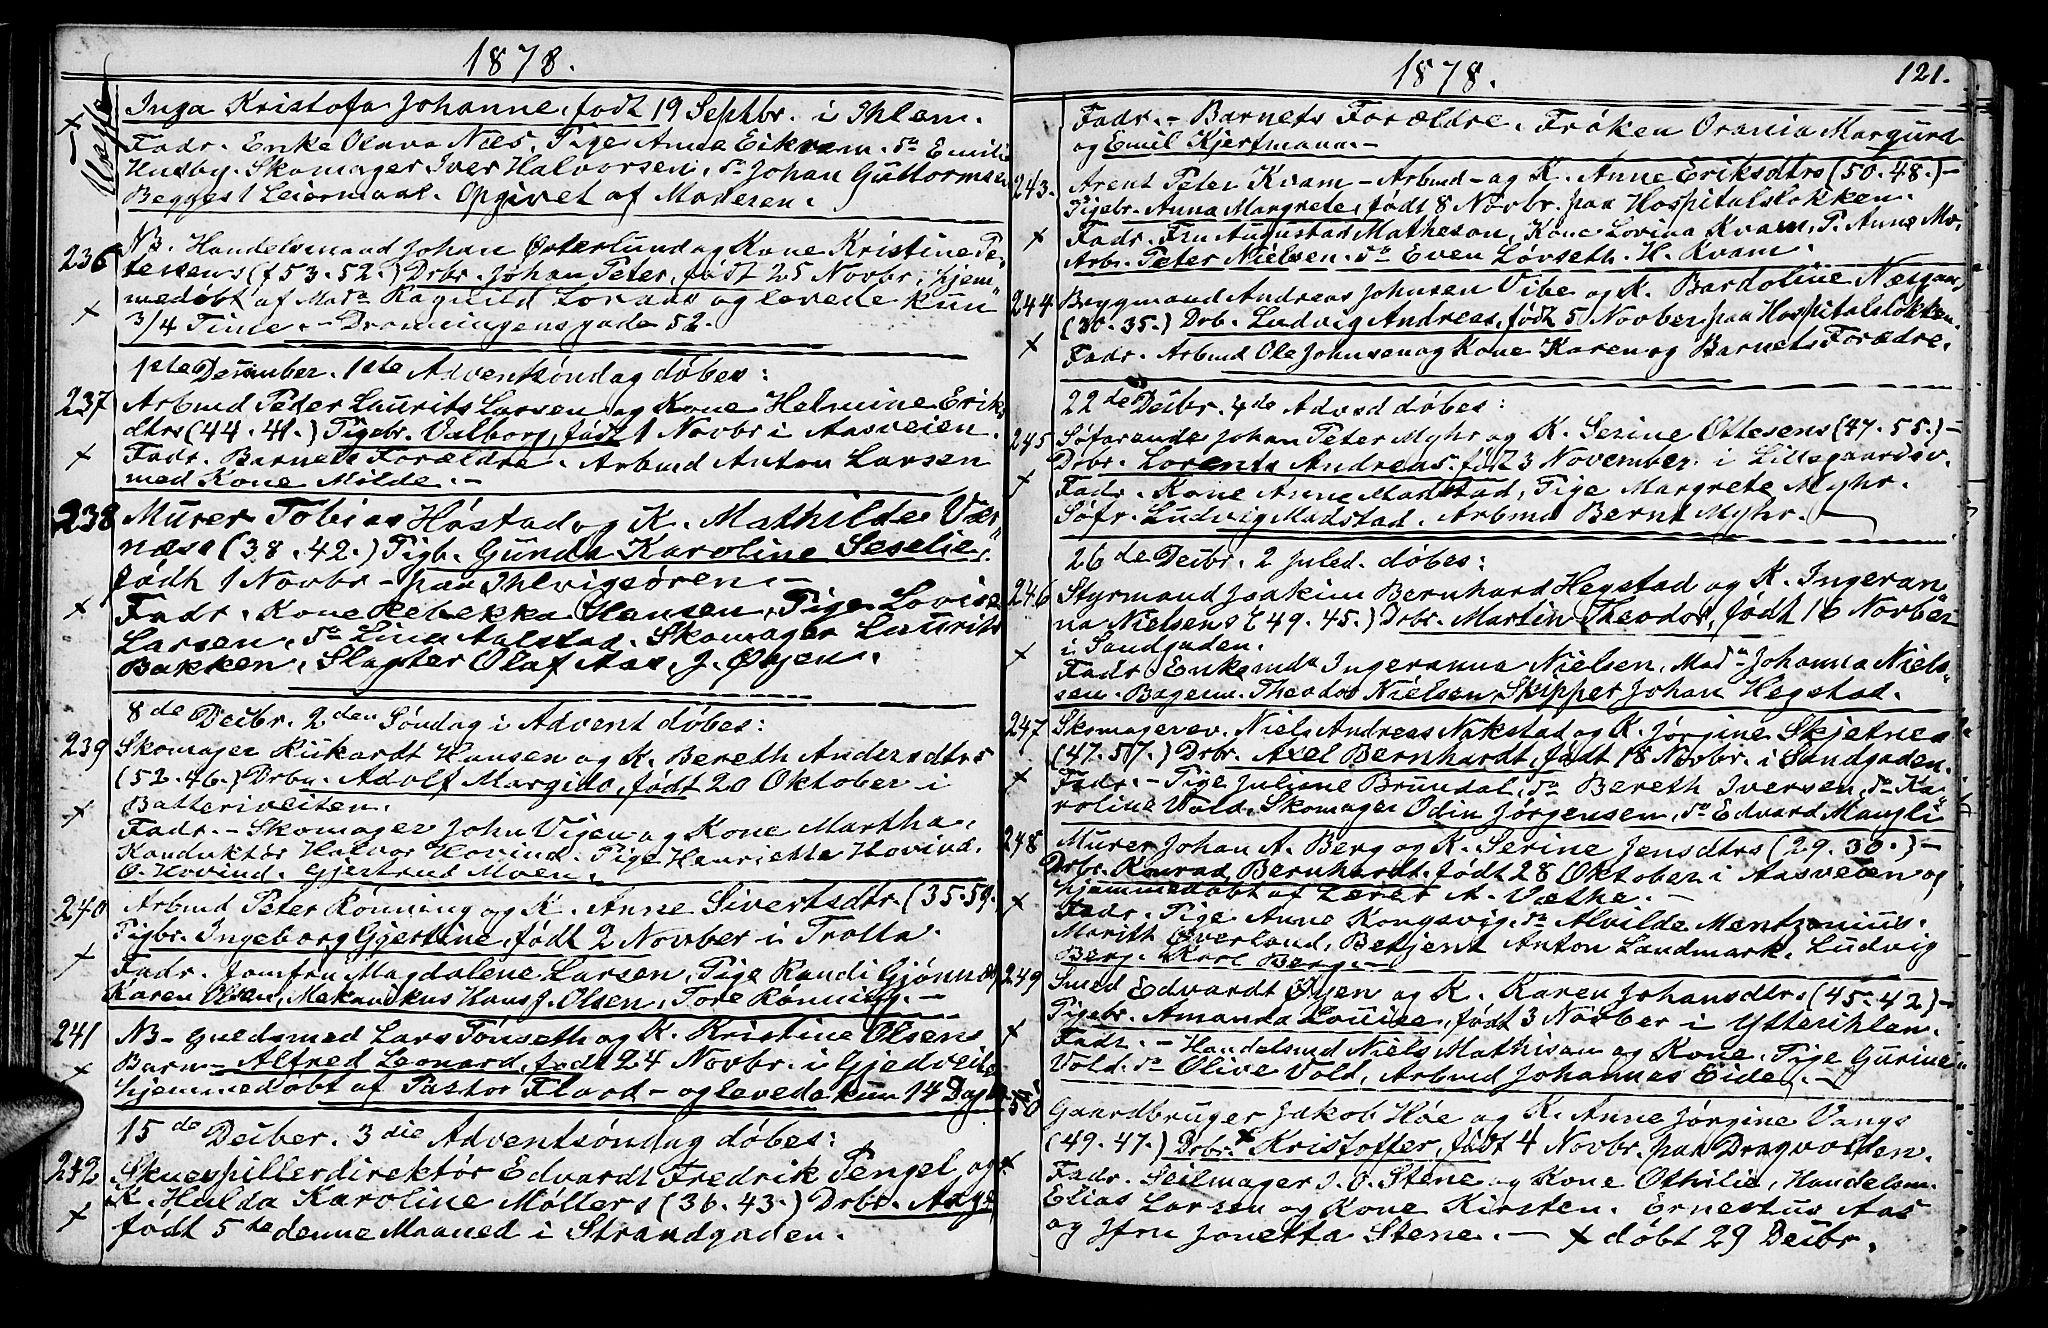 1878.
Inga Kristofa Johanne, født 19 Septbr. i Ihlem.
Fadr. Enke Olava Niês, Tige Anne Eikrem. do Emilie
Hudby. Skomager Iver Halvorsen, do Johan Guttormsen
Begges 1 Leiermaal. Opgivet af Moderen.
236 NB. Handelsmand Johan Østerlund og Kone Kristine Pe-
tersens (f 53. 52.) Drbr. Johan Peter, født 25 Novbr, hjem-
medøbt af Mada Ragnhild Loraas og levede kun
3/4 Time. - Dronningensgade 52.
1ste December. 1ste Adventsøndag døbes:
237 Arbmd Peder Laurits Larsen og Kone Helmine Erik-
dtrs (44. 41.) Pigebr. Valborg, født 1 Novbr i Aasveien.
Fadr. Barnets Forældre. Arbmd Anton Larsen
med Kone Milde. -
238 Murer Tobias Høstad og K. Mathilde Vær-
næse (38. 42.) Pigb. Gunda Karoline Seselie,
født 1 Novbr - paa Ihlvigsøren. -
Fadr. Kone Rebekka Hansen, Pige Lovise
Larsen, do Lina Aalstad. Skomager Laurits
Bakken, Slagter Olaf Aas, J. Øyen.
8de Deibr. 2den Søndag i Advent døbes:
239 Skomager Rikardt Hansen og K. Bereth Andersdtrs
(52. 46.) Drbn. Adolf Margido, født 20 Oktober i
Batteriveiten.
Fadr. - Skomager John Vigen og Kone Martha,
Konduktør Halvor Hovind. Pige Henriette Hovind.
O. Hovind. Gjertrud Moen.
240 Arbmd Peter Rønning og K. Anne Sivertsdtr. (35. 59.
Pigbr. Ingeborg Gjertine, født 2 Novber i Trolla.
Fadr. Jomfru Magdalene Larsen, Pige Randi Gjønnes,
Karen Olsen, Mekanikus Hans J. Olsen, Tore Rønning. -
241 NB - Lars Tønseth og K. Kristine Olsens
Barn - Alfred Leonard, født 24 Novbr. i Gjedveite
hjemmedøbt af Pastor Flood - og levede kun 14 Dage
15de Deiber. 3die Adventsøndag døbes:
242 Skuespillerdirektør Edvardt Fredrik Pengel og
K. Hulda Karoline Møllers (36. 43.) Drbr. Aage
født 5te denne Maaned i Strandgaden.
1878. 121.
Fadr. - Barnets Forældre. Frøken Orania Margurd
og Emil Kjerfmann. -
243. Arent Peter Kvam - Arbmd - og K. Anne Eriksdtrs (50. 48.) -
Pigebr. Anna Margrete, født 8 Novbr. paa Hospitalsløkken.
Fadr. Fru Augustad Matheson, Kone Lovina Kvam, P. Anne Mo,
Arb. Peter Nielsen. do Even Lørseth. H. Kvam.
244 Brygmand Andreas Johnsen Vibe og K. Bardoline Næsgaar,
(30. 35.) Drb. Ludvig Andreas, født 5 Novber paa Hospitalsløkken.
Fadr. Arbmd Ole Johnsen og Kone Karen og Barnets Forædre.
22de Deibr. 4de Advsd døbes:
245 Søfarende Johan Peter Myhr og K. Serine Ottesens (47. 55.) -
Drbr. Lorents Andreas født 3 November i Lillegaardsv.
Fadr. Kone Anne Madstad, Pige Margrete Myhr.
Søfr. Ludvig Madstad. Arbmd Bernt Myhr. -
26de Deibr. 2 Juled. døbes:
246 Styrmand Joakim Bernhard Hegstad og K. Ingeran-
na Nielsens (49. 45.) Drbr. Martin Theodor, født 16 Novber
i Sandgaden.
Fadr. Enkemda Ingeranna Nielsen, Mada Johanna Niels-
sen. Bagem. Theodor Nielsen, Skipper Johan Hegstad.
247 Skomagersv. Niels Andreas Nakstad og K. Jørgine Skjetnes
(47. 57.) Drbr. Axel Bernhardt, født 18 Novbr. i Sandgaden.
Fadr. - Pige Juliane Brundal, do Bereth Iversen, do Ka-
roline Vold, Skomager Odin Jørgensen, do Edvard Mangli
248 Murer Johan A. Berg og K. Serine Jensdtrs (29. 30.) -
Drbr. Konrad Bernhardt. født 28 Oktober i Aasveien og
hjemmedøbt af Lærer A. Væthe. -
Fadr. Pige Anne Kongsvig, do Alvilde Mentzonius.
Marith Øverland, Betjent Anton Landmark, Ludvig
Berg. Karl Berg. -
249 Smed Edvardt Øyen og K. Karen Johansdtrs (45. 42) -
Pigebr. Amanda Louise, født 3 Novber i Ytterihlen.
Fadr. - Handelsmd Niels Mathisen og Kone, Pige Gurine
Vold. do Olive Vold, Arbmd Johannes Eide. -
250 Gaardbruger Jakob Høe og K. Anne Jørgine Vangs
(49. 47.) Drbr. x Kristoffer, født 4 Novbr. paa Dragvolden.
Fadr. Seilmager J. O. Stene og Kone Othilie, Handelsm.
Elias Larsen og Kone Kirsten. Ernestus Aas
og Jfru Jonetta Stene. - x døbt 29 Deibr.